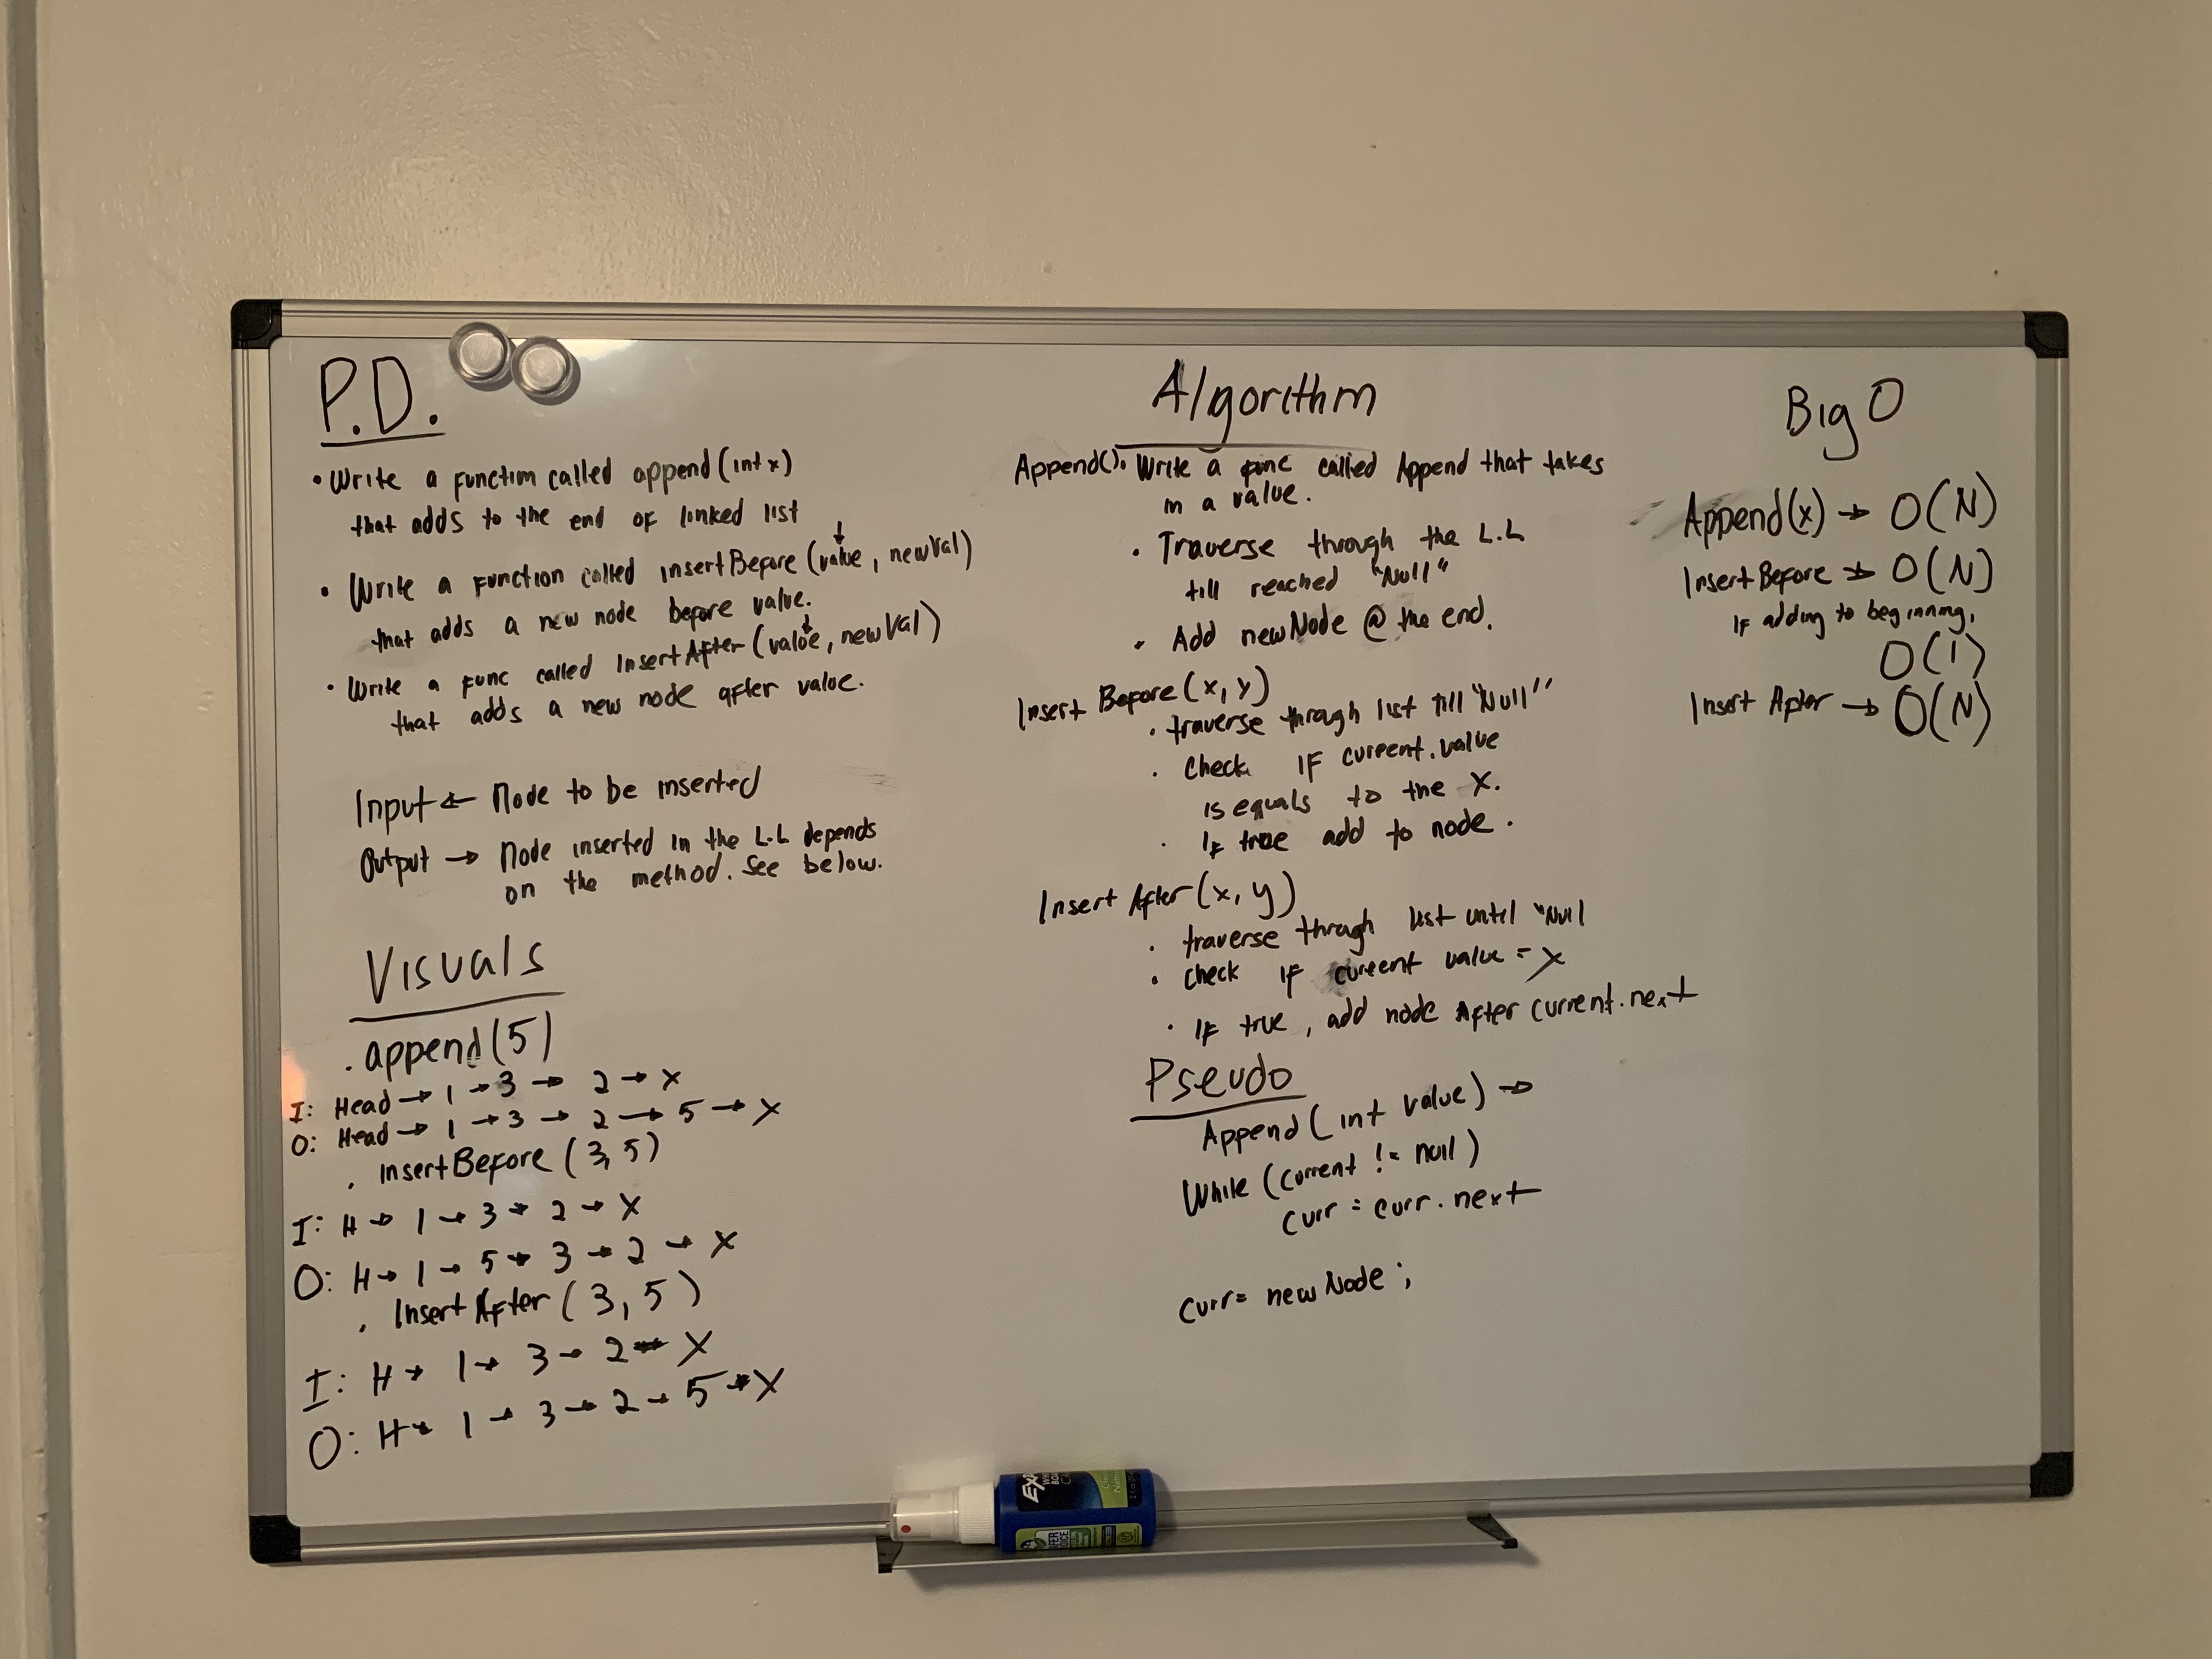 P.D.
• Write a function called append(int x)
that adds to the end of linked list
• Write a function called insertBefore (value, newVal)
that adds a new node before value.
• Write a func called InsertAfter (value, newVal)
that adds a new node after value.
Input ← Node to be inserted
Output → Node inserted in the L.L depends
on the method. See below.
Visuals
. append(5)
I: Head → 1 → 3 → 2 → X
O: Head → 1 → 3 → 2 → 5 → X
. insertBefore (3, 5)
I: H → 1 → 3 → 2 → X
O: H → 1 → 5 → 3 → 2 → X
. Insert After (3, 5)
I: H → 1 → 3 → 2 → X
O: H → 1 → 3 → 2 → 5 → X
Algorithm
Append(). Write a func called Append that takes
in a value.
• Traverse through the L.L
till reached "Null"
• Add newNode @ the end.
Insert Before (x, y)
• traverse through list till "Null"
• check IF current.value
is equals to the X.
• If true add to node.
Insert After (x, y)
• traverse through list until "Null
• check if current value = x
• If true, add node After current.next
Pseudo
Append (int value) →
While (current != null)
curr = curr.next
curr = newNode;
Big O
Append(x) → O(N)
Insert Before → O(N)
If adding to beginning,
O(1)
Insert After → O(N)